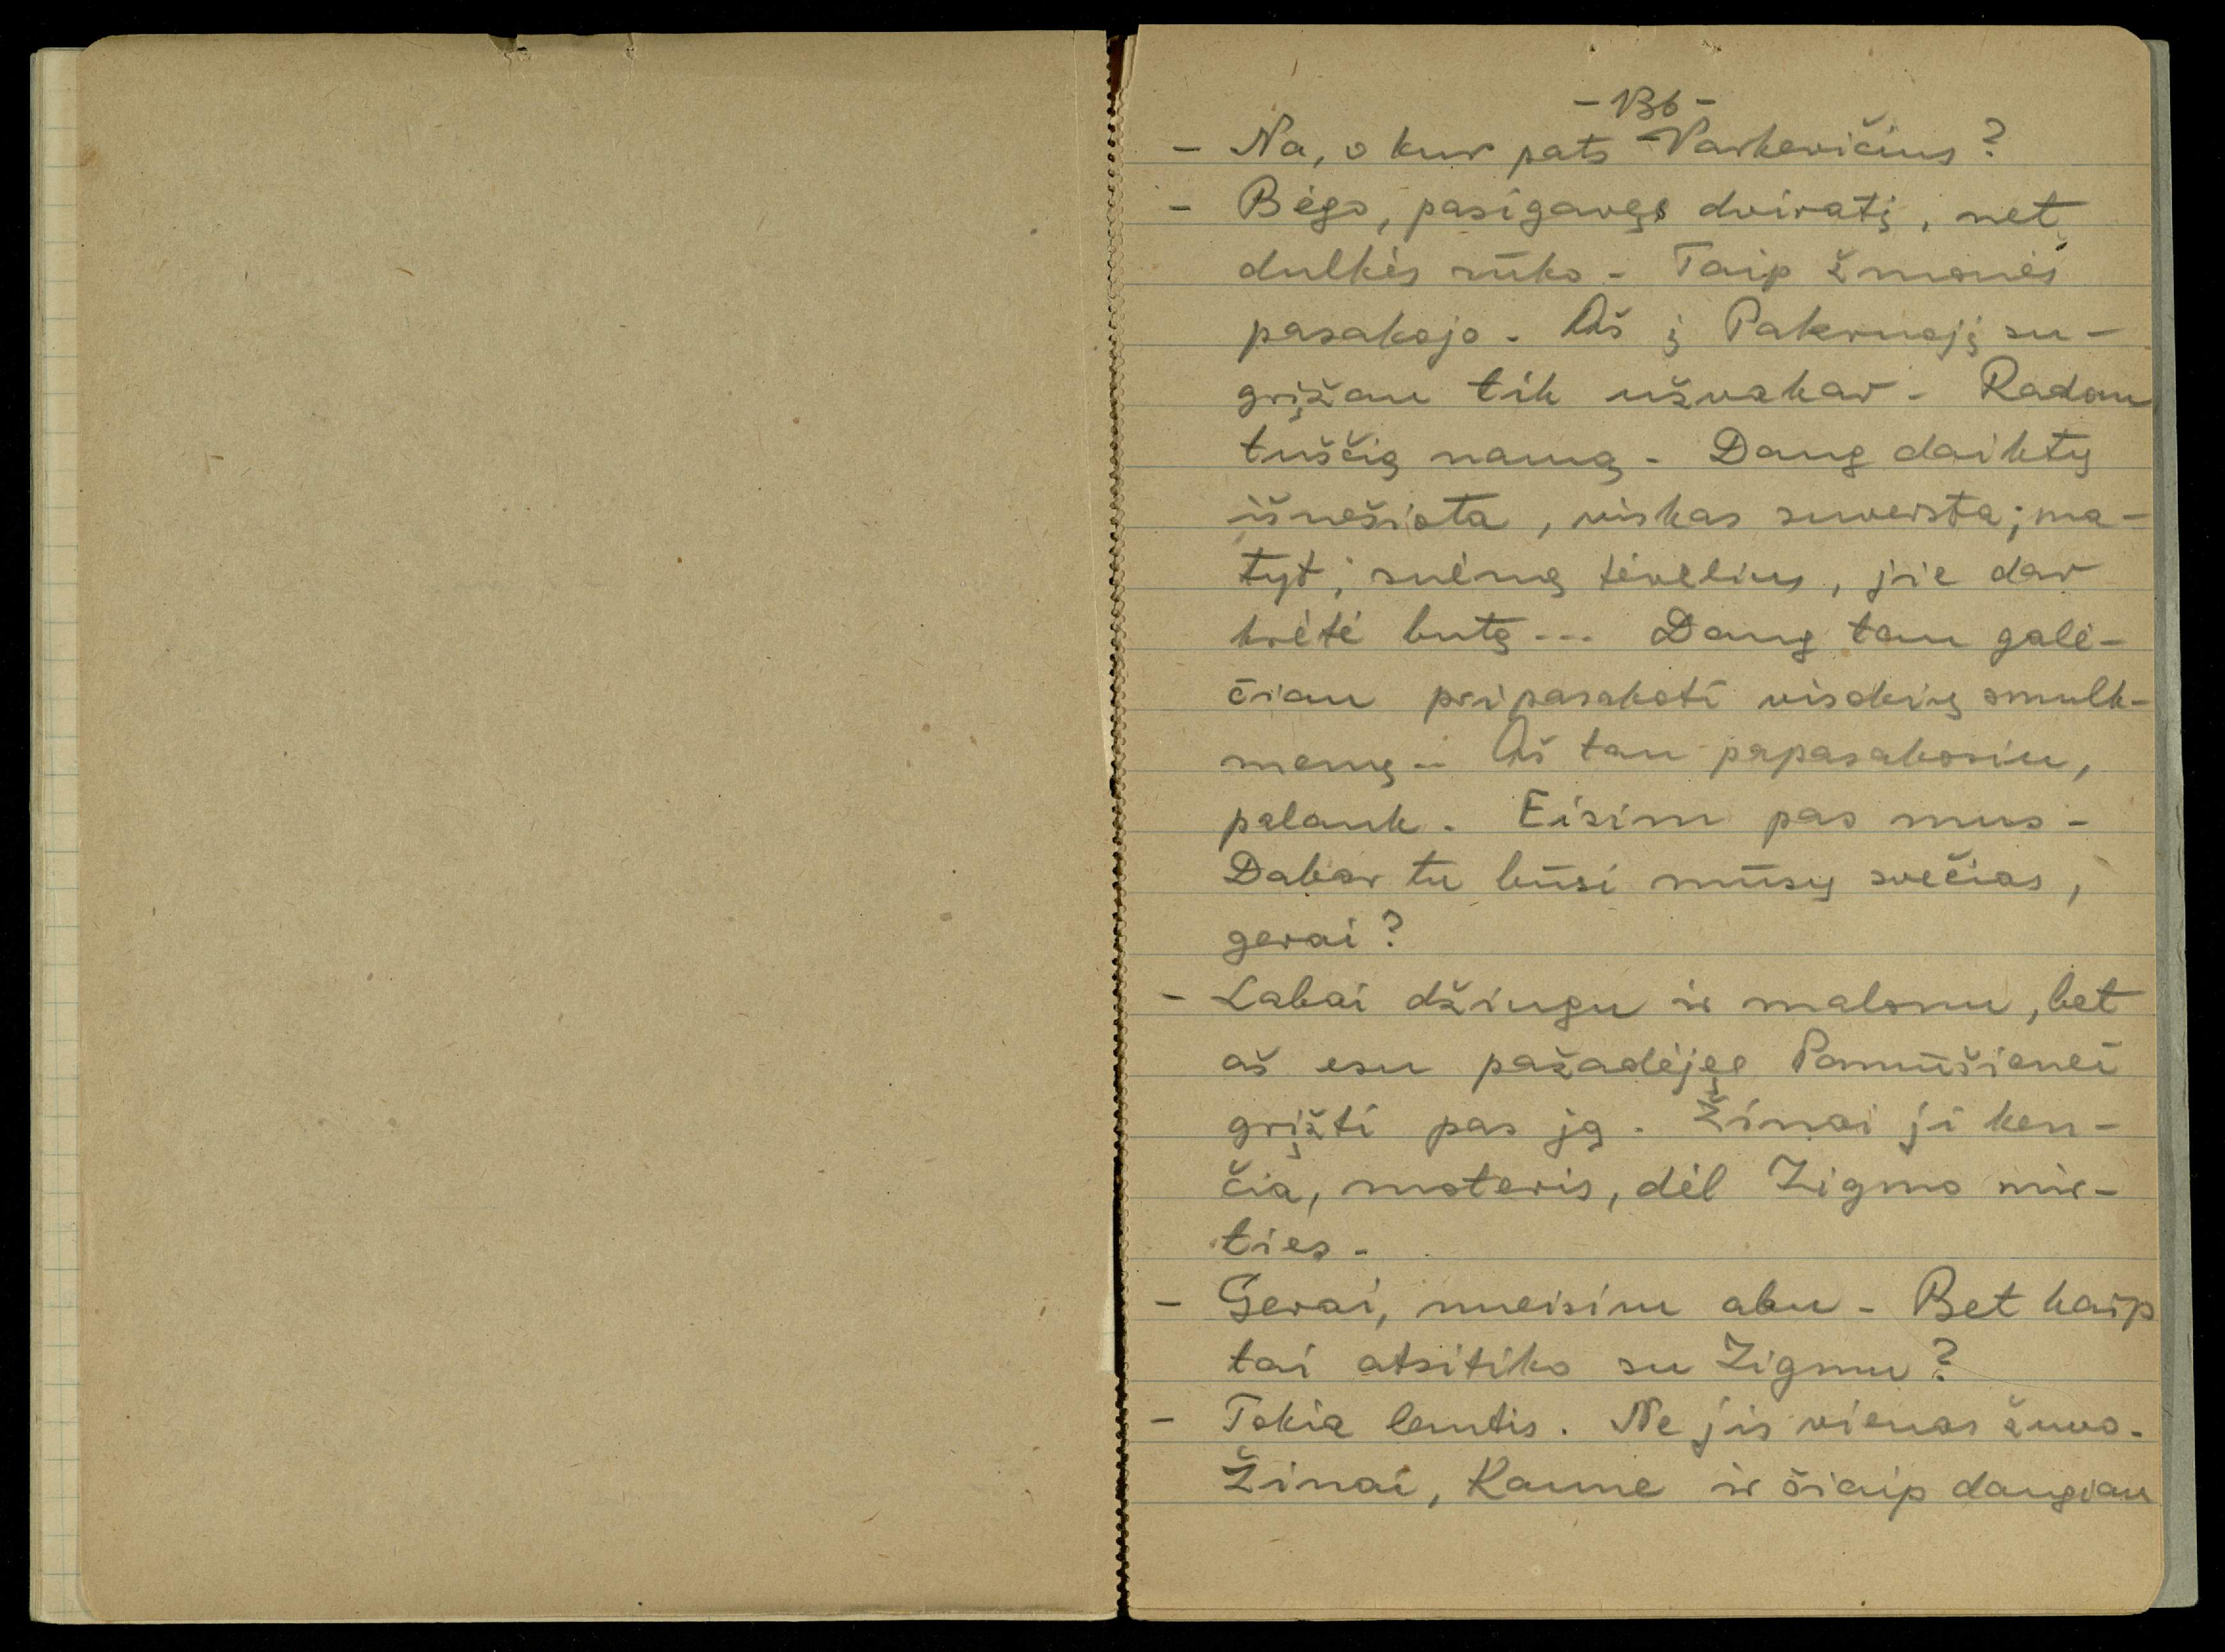 - 136 -
- Na, o kur pats Varkevičius?
- Bėgo, pasigavęs dviratį, net
dulkės rūko. Taip žmonės
pasakojo. Aš į Pakruojį su-
grįžau tik užvakar. Radau
tuščią namą. Daug daiktų
išnešiota, viskas suversta; ma-
tyt, suėmę tėvelius, jie dar
krėtė butą... Daug tau galė-
čiau pripasakoti visokių smulk-
menų... Aš tau papasakosiu,
palauk. Eisim pas mus.
Dabar tu būsi mūsų svečias,
gerai?
- Labai džiugu ir malonu, bet
aš esu pažadėjęs Pamūšienei
grįžti pas ją. Žinai ji ken-
čia, moteris, dėl Zigmo mir-
ties.
- Gerai, nueisim abu. Bet kaip
tai atsitiko su Zigmu?
- Tokia lemtis. Ne jis vienas žuvo.
Žinai, Kaune ir šiaip daugiau